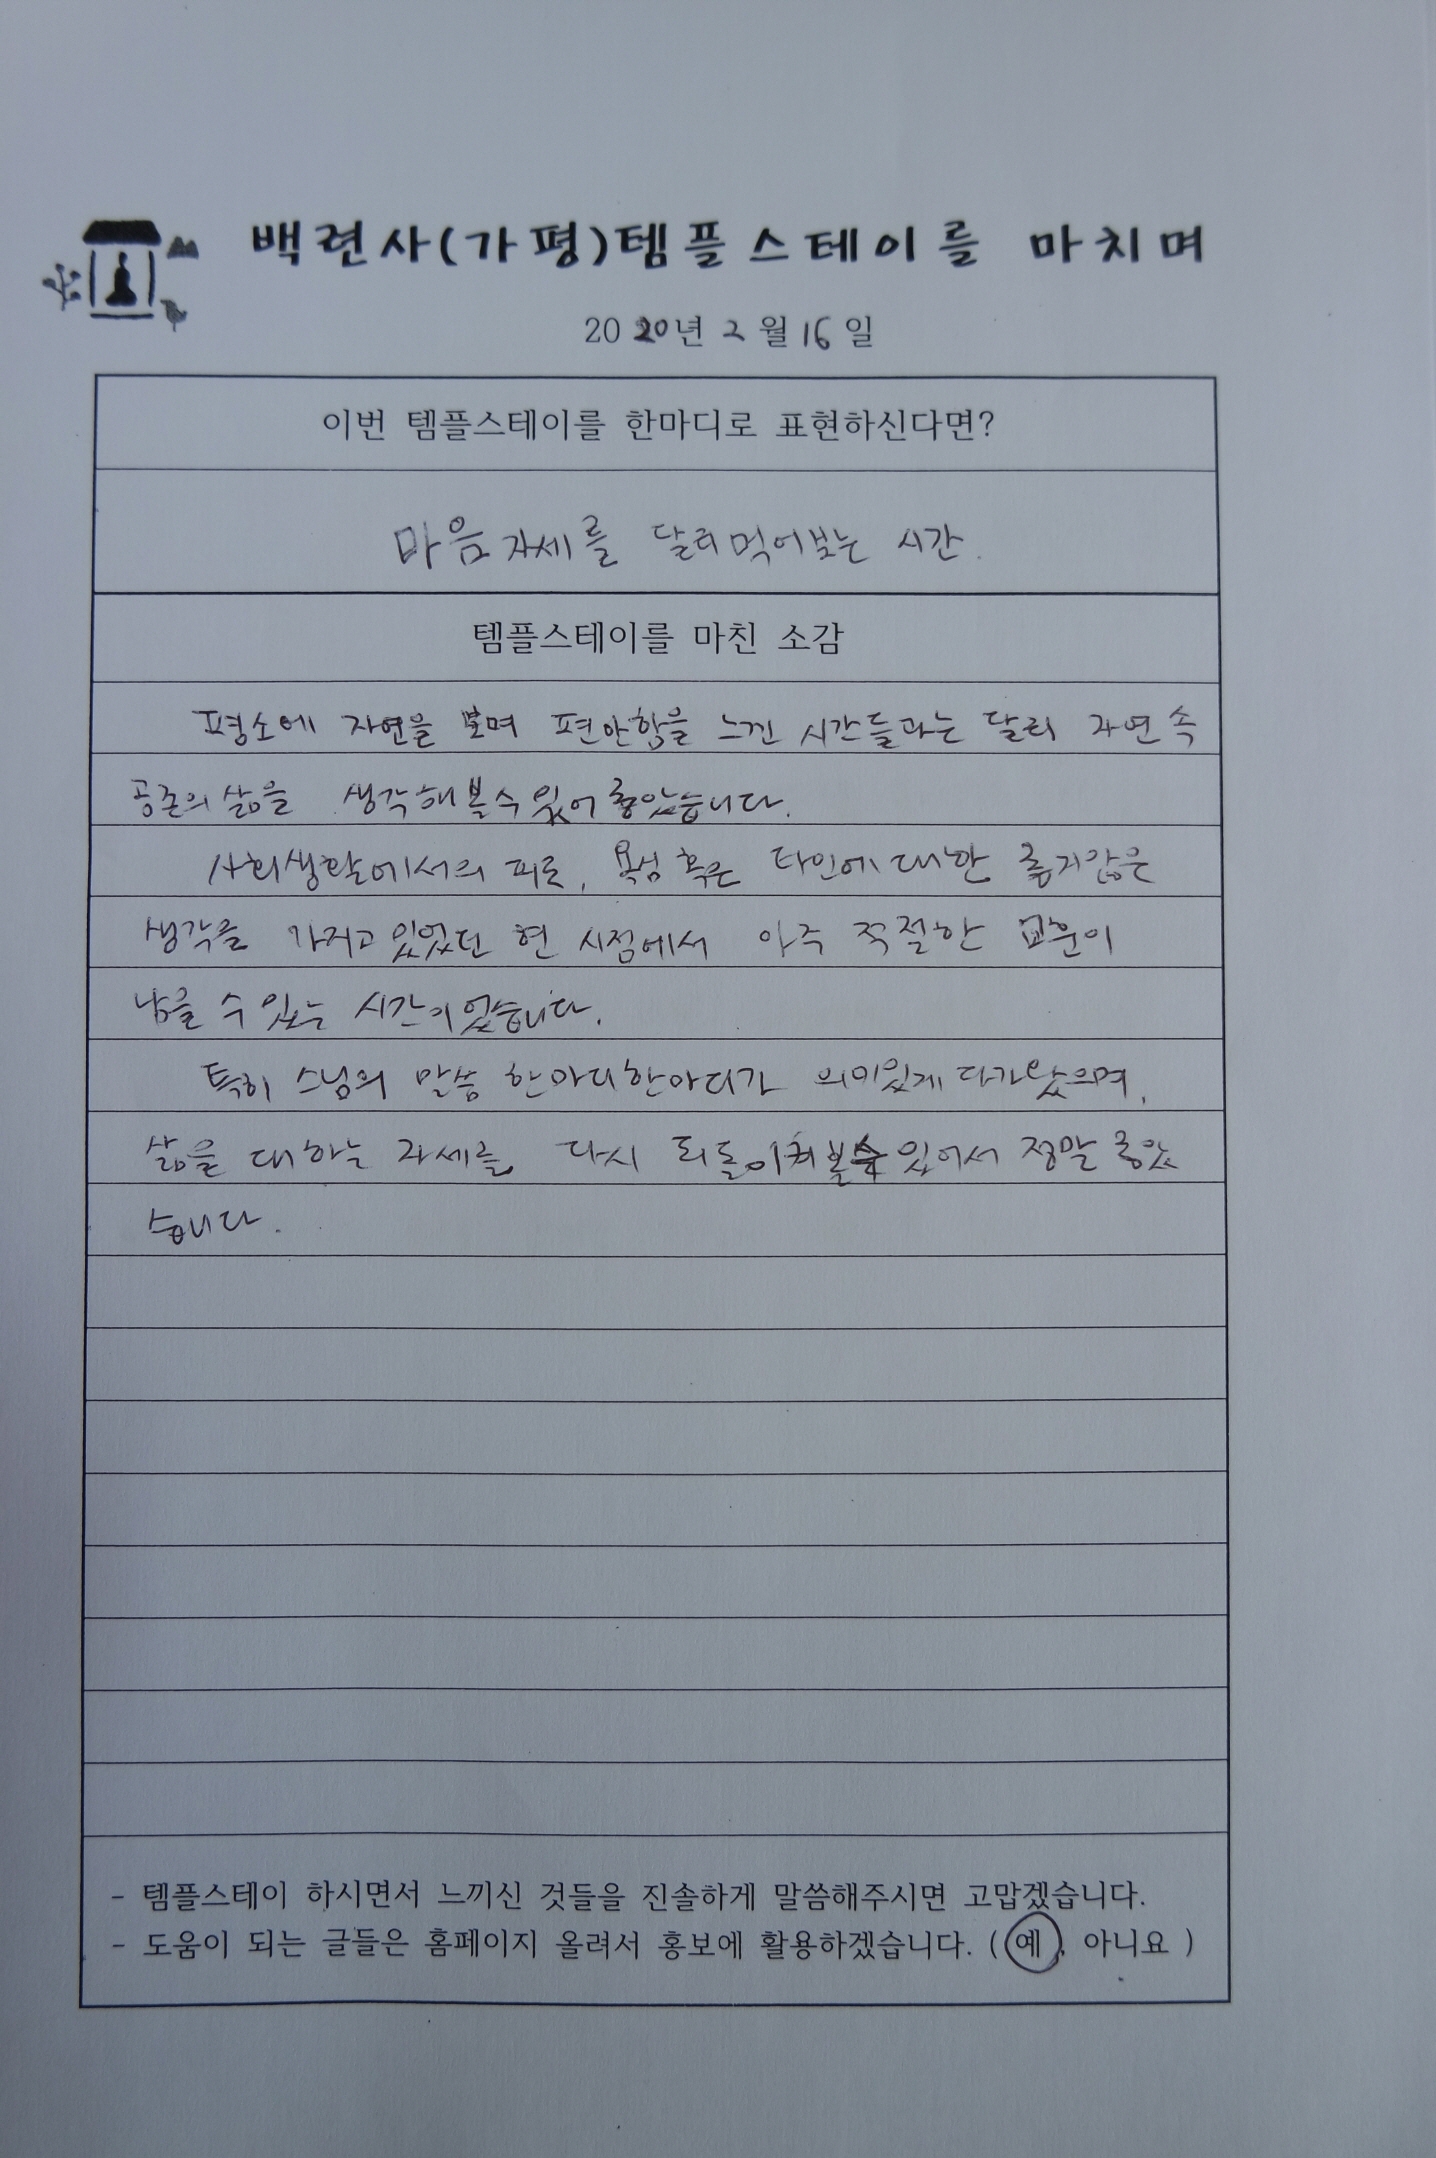 백련사(가평)템플스테이를 마치며
2020년 2월 16일
이번 템플스테이를 한마디로 표현하신다면?
마음자세를 달리먹어보는 시간.
템플스테이를 마친 소감
평소에 자연을 보며 편안함을 느낀 시간들과는 달리 자연 속
공존의 삶을 생각해볼수있어 좋았습니다.
사회생활에서의 피로, 욕심 혹은 타인에 대한 좋지않은
생각을 가지고 있었던 현 시점에서 아주 적절한 교훈이
남을 수 있는 시간이었습니다.
특히 스님의 말씀 한마디한마디가 의미있게 다가왔으며,
삶을 대하는 자세를 다시 되돌이켜볼수있어서 정말 좋았
습니다.
- 템플스테이 하시면서 느끼신 것들을 진솔하게 말씀해주시면 고맙겠습니다.
- 도움이 되는 글들은 홈페이지 올려서 홍보에 활용하겠습니다. ( 예 , 아니요 )